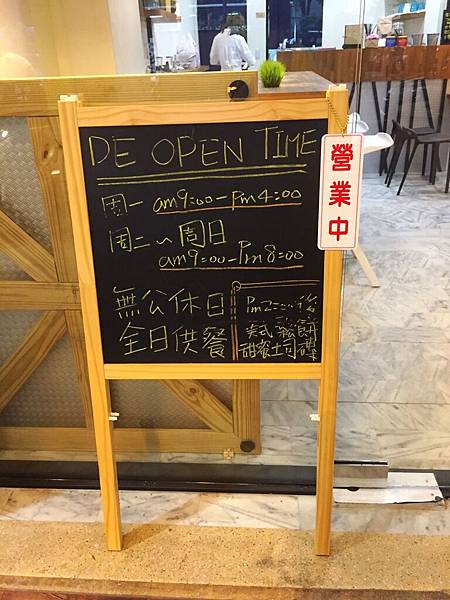 DE OPEN TIME
周一 am9:00-pm4:00
周二~周日
am9:00-Pm8:00
無公休日
全日供餐
Pm2:00後
美式鬆餅
甜蜜土司磚
營業中